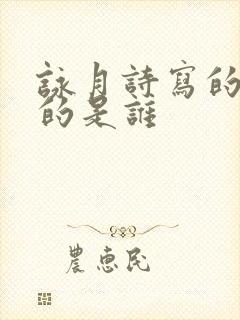 詠月詩寫的
的是誰
農惠民